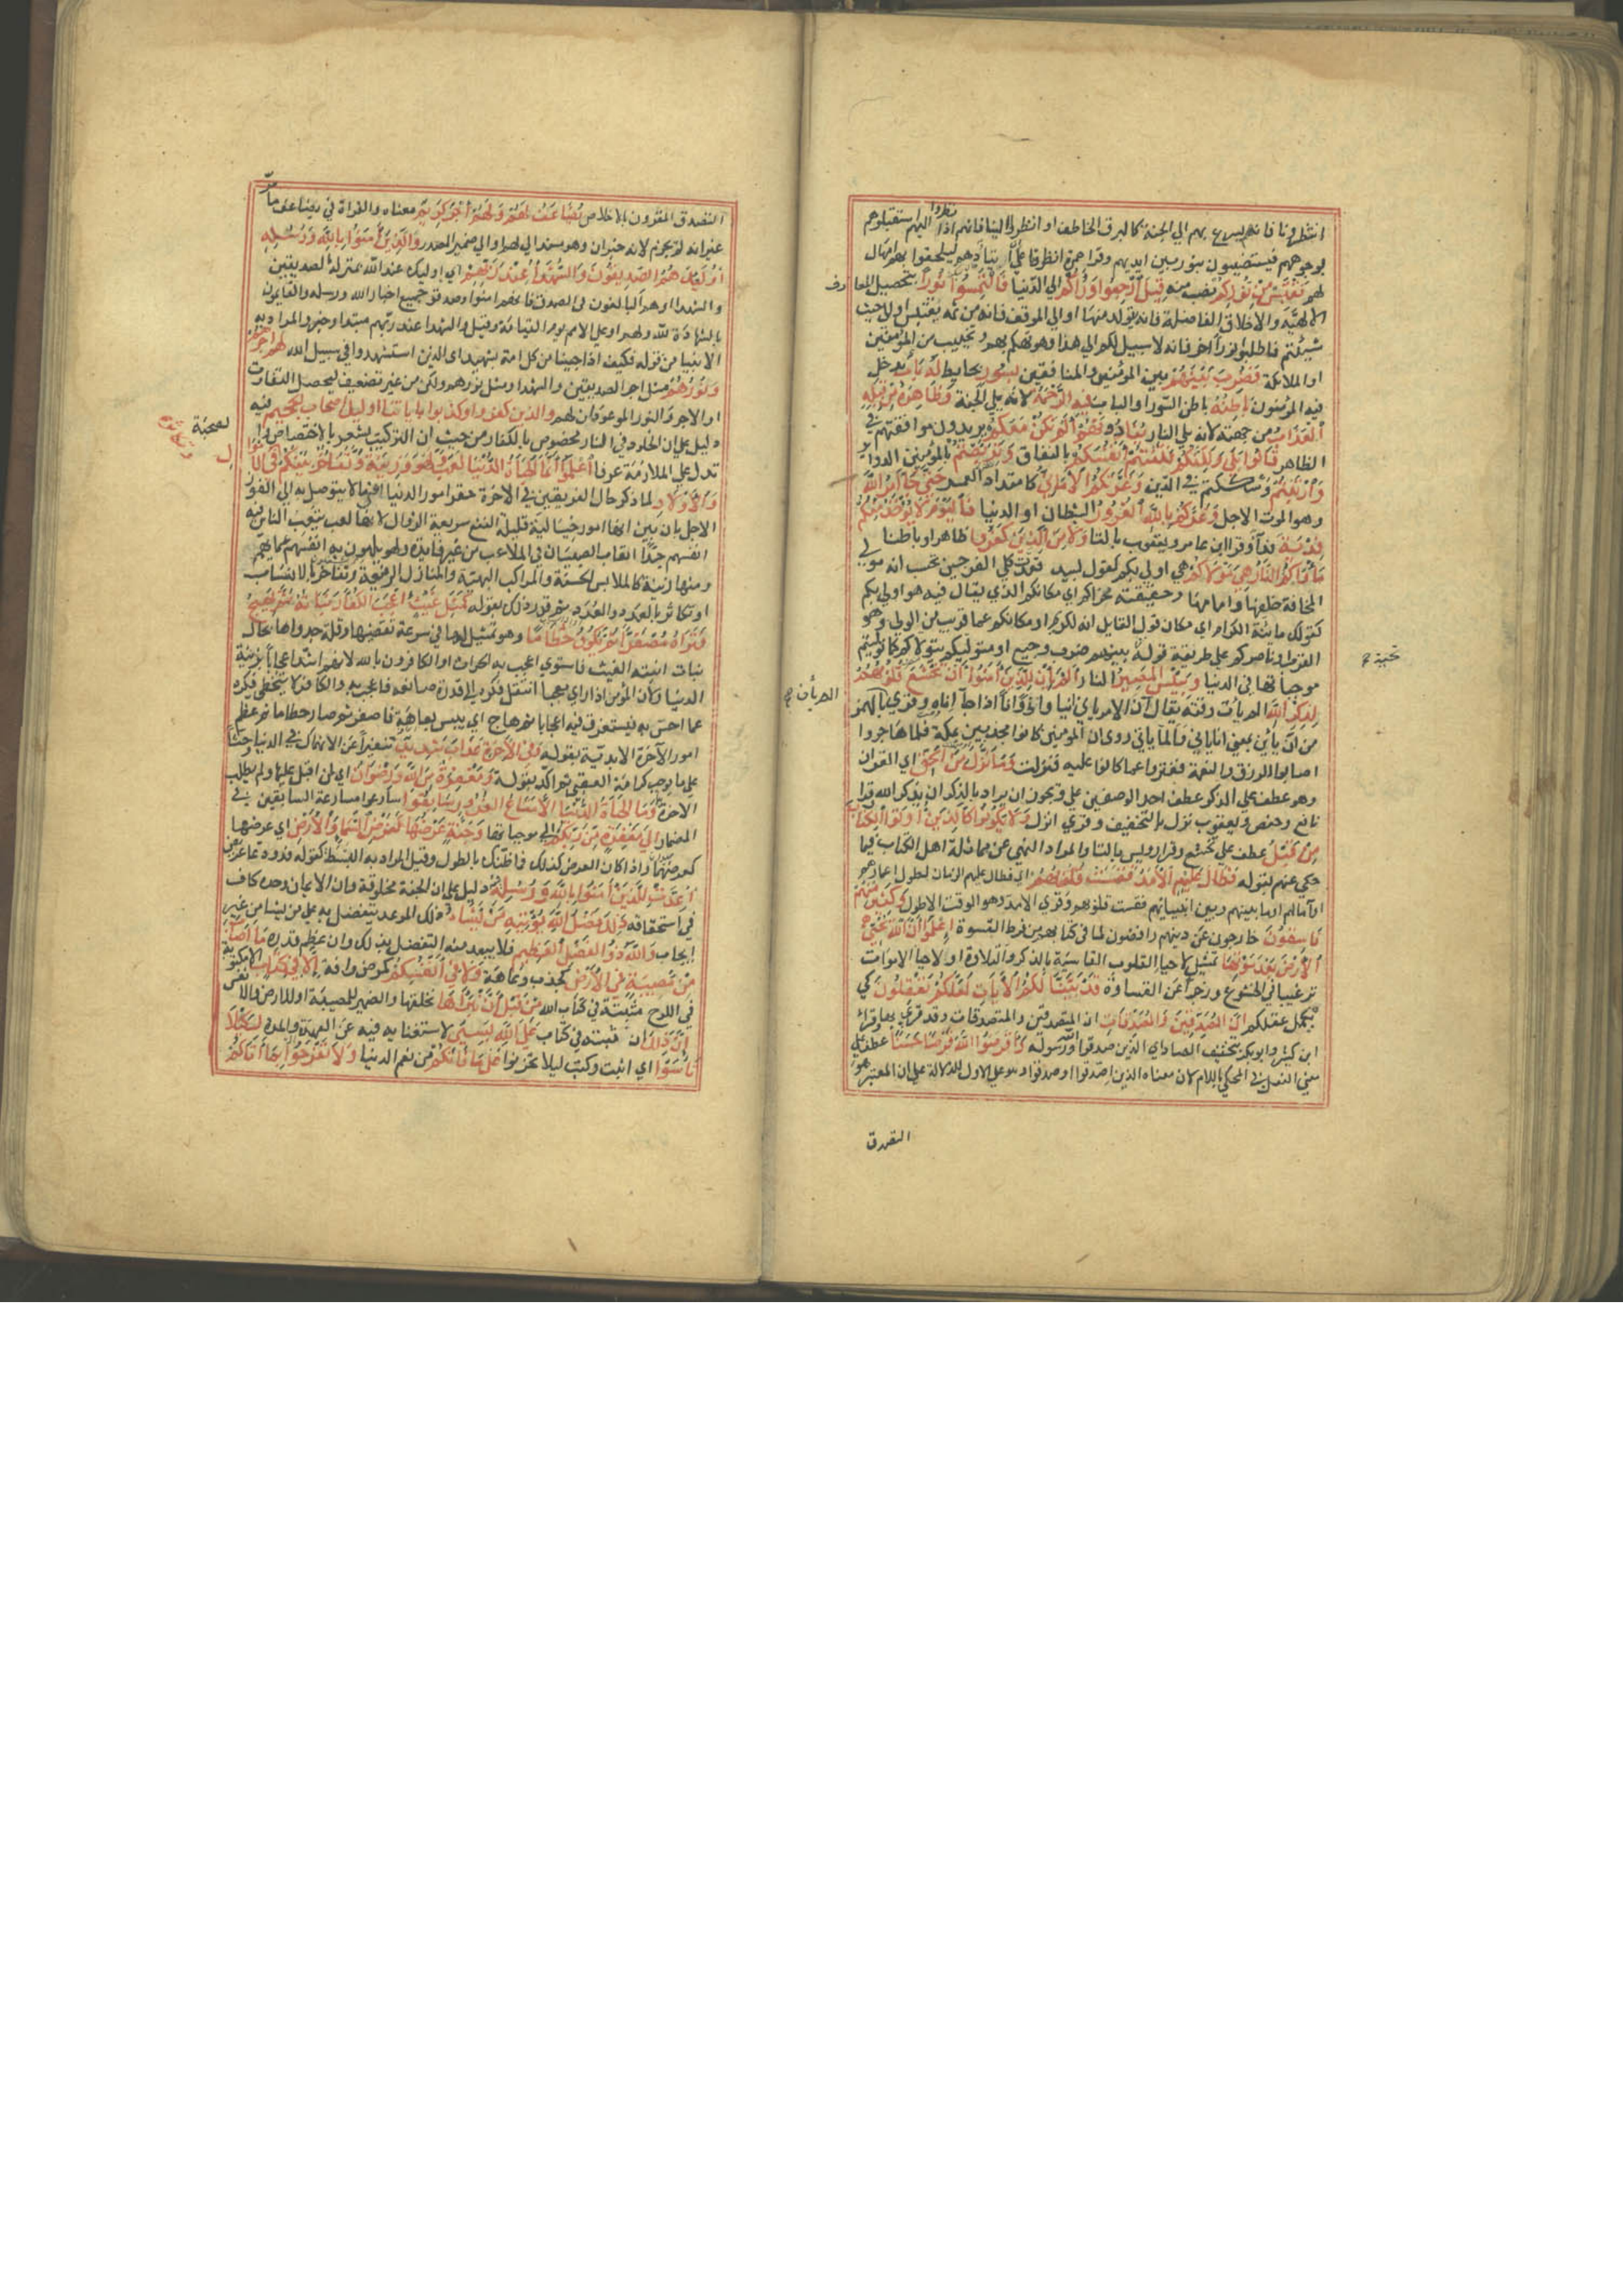 انتظرونا فانهم يسرع بهم الي الجنة كالبرق الخاطف او انظروا الينا فانهم اذا نظروا اليهم استقبلوهم
بوجوههم فيستضيبون بنور بين ايديهم وقرا حمزة انظرونا علي ان اتئادهم ليلحقوا بهم امهال
لهم نَقْتَبِسْ مِنْ نُورِكُمْ نصب منه قِيلَ ارْجِعُوا وَرَاءَكُمْ الي الدنيا فَالْتَمِسُوا نُورًا بتحصيل المعارف
الالهية والاخلاق الفاضلة فانه يتولد منها او الي الموقف فانه من ثمه يقتبس او لاحيث
شيئتم فاطلبوا نورا اخر فانه لا سبيل لكم الي هذا وهو تهكم بهم وتخييب من المؤمنين
او الملايكة فَضُرِبَ بَيْنَهُمْ بين المؤمنين والمنافقين بِسُورٍ بحايط لَهُ بَابٌ يدخل
فيه المؤمنون بَاطِنُهُ باطن السورا والباب فِيهِ الرَّحْمَةُ لانه يلي الجنة وَظَاهِرُهُ مِنْ قِبَلِهِ
الْعَذَابُ من جهته لانه يلي النار يُنَادُونَهُمْ أَلَمْ نَكُنْ مَعَكُمْ يريدون موافقتهم في
الظاهر قَالُوا بَلَى وَلَكِنَّكُمْ فَتَنْتُمْ أَنْفُسَكُمْ بالنفاق وَتَرَبَّصْتُمْ بالمؤمنين الدواير
وَارْتَبْتُمْ وشككتم في الدين وَغَرَّتْكُمُ الْأَمَانِيُّ كامتداد العمر حَتَّى جَاءَ أَمْرُ اللَّهِ
وهو الموت الاجل وَغَرَّكُمْ بِاللَّهِ الْغَرُورُ الشيطان او الدنيا فَالْيَوْمَ لَا يُؤْخَذُ مِنْكُمْ
فِدْيَةٌ فدا وقرا ابن عامر ويعقوب بالتا وَلَا مِنَ الَّذِينَ كَفَرُوا ظاهرا وباطنا
مَأْوَاكُمُ النَّارُ هِيَ مَوْلَاكُمْ هي اولي بكم كقول لبيد فغدت كلي الفرجين تحسب انه مولي
المخافة خلفها وامامها وحقيقته محراكم اي مكانكم الذي يقال فيه هو اولي بكم
كقولك مائنة الكرام اي مكان قول القايل انه لكريم او مكانكم عما قريب من الولي وهو
القرب او ناصركم علي طريقة قوله تحية بينهم ضرب وجيع او متوليكم يتولاكم كما توليتم
موجباتها في الدنيا وَبِئْسَ الْمَصِيرُ النار أَلَمْ يَأْنِ لِلَّذِينَ آمَنُوا أَنْ تَخْشَعَ قُلُوبُهُمْ
لِذِكْرِ اللَّهِ الم يات وقته يقال آن الامر ياني انيا واناً واناً اذا جا اناه وقري بالهمز
من ان يأين بمعني اناياني فالما ياتي روي ان المؤمنين كانوا مجدبين بمكة فلما هاجروا
اصابوا الرزق والنعمة ففتروا عما كانوا عليه فنزلت وَمَا نَزَلَ مِنَ الْحَقِّ اي القران
وهو عطف علي الذكر عطف احد الوصفين علي ويجوز ان يراد بالذكر ان يذكر الله قرا
نافع وحفص ويعقوب نزل بالتخفيف وقري انزل وَلَا يَكُونُوا كَالَّذِينَ أُوتُوا الْكِتَابَ
مِنْ قَبْلُ عطف علي تخشع وقرا رويس بالتا والمراد النهي عن مماثلة اهل الكتاب فيما
حكي عنهم بقوله فَطَالَ عَلَيْهِمُ الْأَمَدُ فَقَسَتْ قُلُوبُهُمْ اي فطال عليهم الزمان لطول اعمارهم
او آمالهم او ما بينهم وبين انبيايهم فقست قلوبهم وقري الامد وهو الوقت الاطول وَكَثِيرٌ مِنْهُمْ
فَاسِقُونَ خارجون عن دينهم رافضون لما في كتابهم من فرط القسوة اعْلَمُوا أَنَّ اللَّهَ يُحْيِي
الْأَرْضَ بَعْدَ مَوْتِهَا تمثيل لاحيا القلوب القاسية بالذكر والتلاوة او لاحيا الاموات
ترغيبا في الخشوع وزجراً عن القساوة قَدْ بَيَّنَّا لَكُمُ الْآيَاتِ لَعَلَّكُمْ تَعْقِلُونَ كي
يكمل عقلكم إِنَّ الْمُصَّدِّقِينَ وَالْمُصَّدِّقَاتِ ان المتصدقين والمتصدقات وقد قري بها وقرا
ابن كثير وابوبكر بتخفيف الصاد اي الذين صدقوا الله ورسوله وَأَقْرَضُوا اللَّهَ قَرْضًا حَسَنًا عطف علي
معني الفعل في المحلي باللام لان معناه الذين اصدقوا او صدقوا وهو علي الاول للدلالة علي ان المعتبر هو
التصدق
الم يأن
التصدق المقرون بالاخلاص يُضَاعَفُ لَهُمْ وَلَهُمْ أَجْرٌ كَرِيمٌ معناه والقراة في يضاعف ما مر
غير انه لم يجزم لانه خبر ان وهو مسند الي لهم او الي ضمير المصدر وَالَّذِينَ آمَنُوا بِاللَّهِ وَرُسُلِهِ
أُولَئِكَ هُمُ الصِّدِّيقُونَ وَالشُّهَدَاءُ عِنْدَ رَبِّهِمْ اي اوليك عند الله بمنزلة الصديقين
والشهدا او هم البالغون في الصدق فانهم امنوا وصدقوا جميع اخبار الله ورسله والقايمون
بالشهادة لله ولهم او علي الامم يوم القيامة وقيل والشهدا عند ربهم مبتدا وخبر والمراد به
الانبيا من قوله فكيف اذا جينا من كل امة بشهيد او الذين استشهدوا في سبيل الله لَهُمْ أَجْرُهُمْ
وَنُورُهُمْ مثل اجر الصديقين والشهدا ومثل نورهم ولكن من غير تضعيف ليحصل التفاوت
او الاجر والنور الموعودان لهم والذين كفروا وكذبوا باياتنا اوليك اصحاب الجحيم فيه
دليل علي ان الخلود في النار مخصوص بالكفار من حيث ان التركيب يشعر بالاختصاص والصحبة
تدل علي الملازمة عرفا اعْلَمُوا أَنَّمَا الْحَيَاةُ الدُّنْيَا لَعِبٌ وَلَهْوٌ وَزِينَةٌ وَتَفَاخُرٌ بَيْنَكُمْ وتكاثر فِي الْأَمْوَالِ
وَالْأَوْلَادِ لما ذكر حال الفريقين في الاخرة حقر امور الدنيا اعني ما لا يتوصل به الي الفوز
الاجل بان بين انها امور خيالية قليلة النفع سريعة الزوال لانها لعب يتعب الناس فيه
انفسهم جدا اتعاب الصبيان في الملاعب من غير فايدة ولهو يلهون به انفسهم عما يهمهم
وزينة كالملابس الحسنة والمراكب البهية والمنازل الرفيعة وتفاخر بالانساب
او تكاثر بالعدد والعُدد ثم قرر ذلك بقوله كَمَثَلِ غَيْثٍ أَعْجَبَ الْكُفَّارَ نَبَاتُهُ ثُمَّ يَهِيجُ
فَتَرَاهُ مُصْفَرًّا ثُمَّ يَكُونُ حُطَامًا وهو تمثيل لها في سرعة تقضيها وقلة جدواها بحال
نبات انبته الغيث فاستوي اعجب به الحراث او الكافرون بالله لانهم اشد اعجابا بزينة
الدنيا ولان المؤمن اذا راي معجبا انتقل فكره الي قدرة صانعه فاعجب به والكافر لا يتخطي فكره
عما احس به فيستغرق فيه اعجابا ثم هاج اي يبس بعاهة فاصفر ثم صار حطاما ثم عظم
امور الآخرة الابدية بقوله وَفِي الْآخِرَةِ عَذَابٌ شَدِيدٌ تنفيرا عن الانهماك في الدنيا وحثا
علي ما يوجب كرامة العقبي ثم اكد بقوله وَمَغْفِرَةٌ مِنَ اللَّهِ وَرِضْوَانٌ اي لمن اقبل عليها ولم يطلب
الاخرة وَمَا الْحَيَاةُ الدُّنْيَا إِلَّا مَتَاعُ الْغُرُورِ سَابِقُوا سارعوا مسارعة السابقين في
المضمار إِلَى مَغْفِرَةٍ مِنْ رَبِّكُمْ الي موجباتها وَجَنَّةٍ عَرْضُهَا كَعَرْضِ السَّمَاءِ وَالْأَرْضِ اي عرضها
كعرضهما واذا كان العرض كذلك فما ظنك بالطول وقيل المراد به البسط كقوله فذو دعا عريض
أُعِدَّتْ لِلَّذِينَ آمَنُوا بِاللَّهِ وَرُسُلِهِ فيه دليل علي ان الجنة مخلوقة وان الايمان وحده كاف
في استحقاقه ذَلِكَ فَضْلُ اللَّهِ يُؤْتِيهِ مَنْ يَشَاءُ ذلك الموعد يتفضل به علي من يشا من غير
ايجاب وَاللَّهُ ذُو الْفَضْلِ الْعَظِيمِ فلا يبعد منه التفضل بذلك وان عظم قدره مَا أَصَابَ
مِنْ مُصِيبَةٍ فِي الْأَرْضِ كجدب وعاهة وَلَا فِي أَنْفُسِكُمْ كمرض وافة إِلَّا فِي كِتَابٍ الا مكتوبة
في اللوح مثبتة في كتاب الله مِنْ قَبْلِ أَنْ نَبْرَأَهَا نخلقها والضمير للمصيبة او للارض والانفس
إِنَّ ذَلِكَ ان ثبته في كتاب عَلَى اللَّهِ يَسِيرٌ لاستغنايه فيه عن العدة والمدة لِكَيْلَا
تَأْسَوْا اي اثبت وكتب ليلا تحزنوا عَلَى مَا فَاتَكُمْ من نعم الدنيا وَلَا تَفْرَحُوا بِمَا آتَاكُمْ